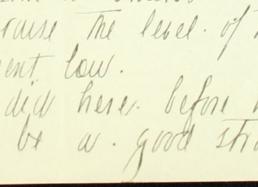 raise the level. of
ent law.
did here. before
be a. good str